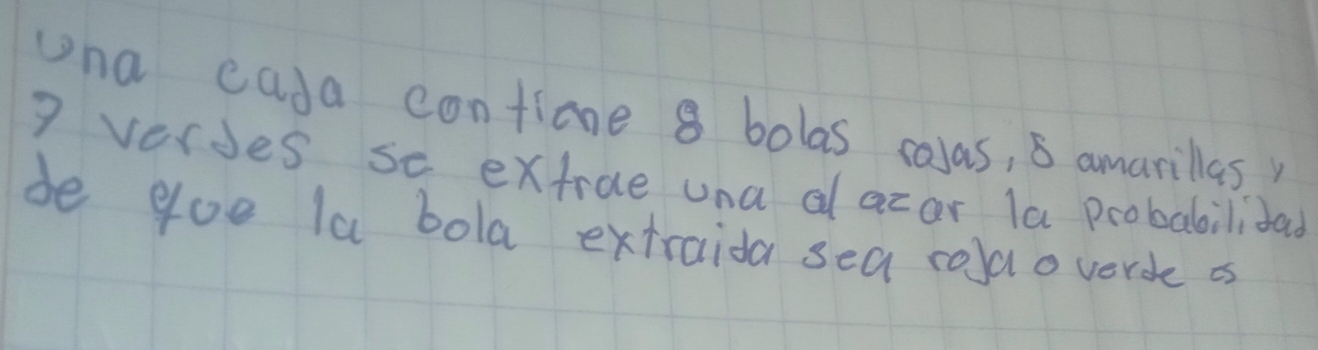 Una caja contiene 8 bolas rojas, 5 amarillas y
7 verdes se extrae una al azar la probabilidad
de que la bola extraida sea roja o verde es